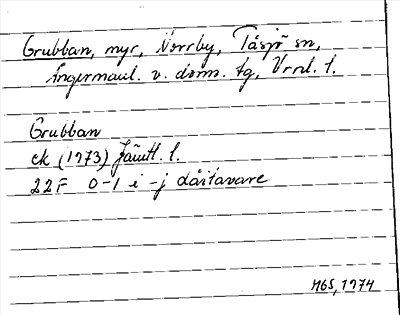 Grubban, myr, Norrby, Tåsjö sn,
Ångermanl. v. doms. tg, Vrnl. l.
Grubban
ek (1973) Jämtl. l.
22F 0-1 i -j
MGS, 1974